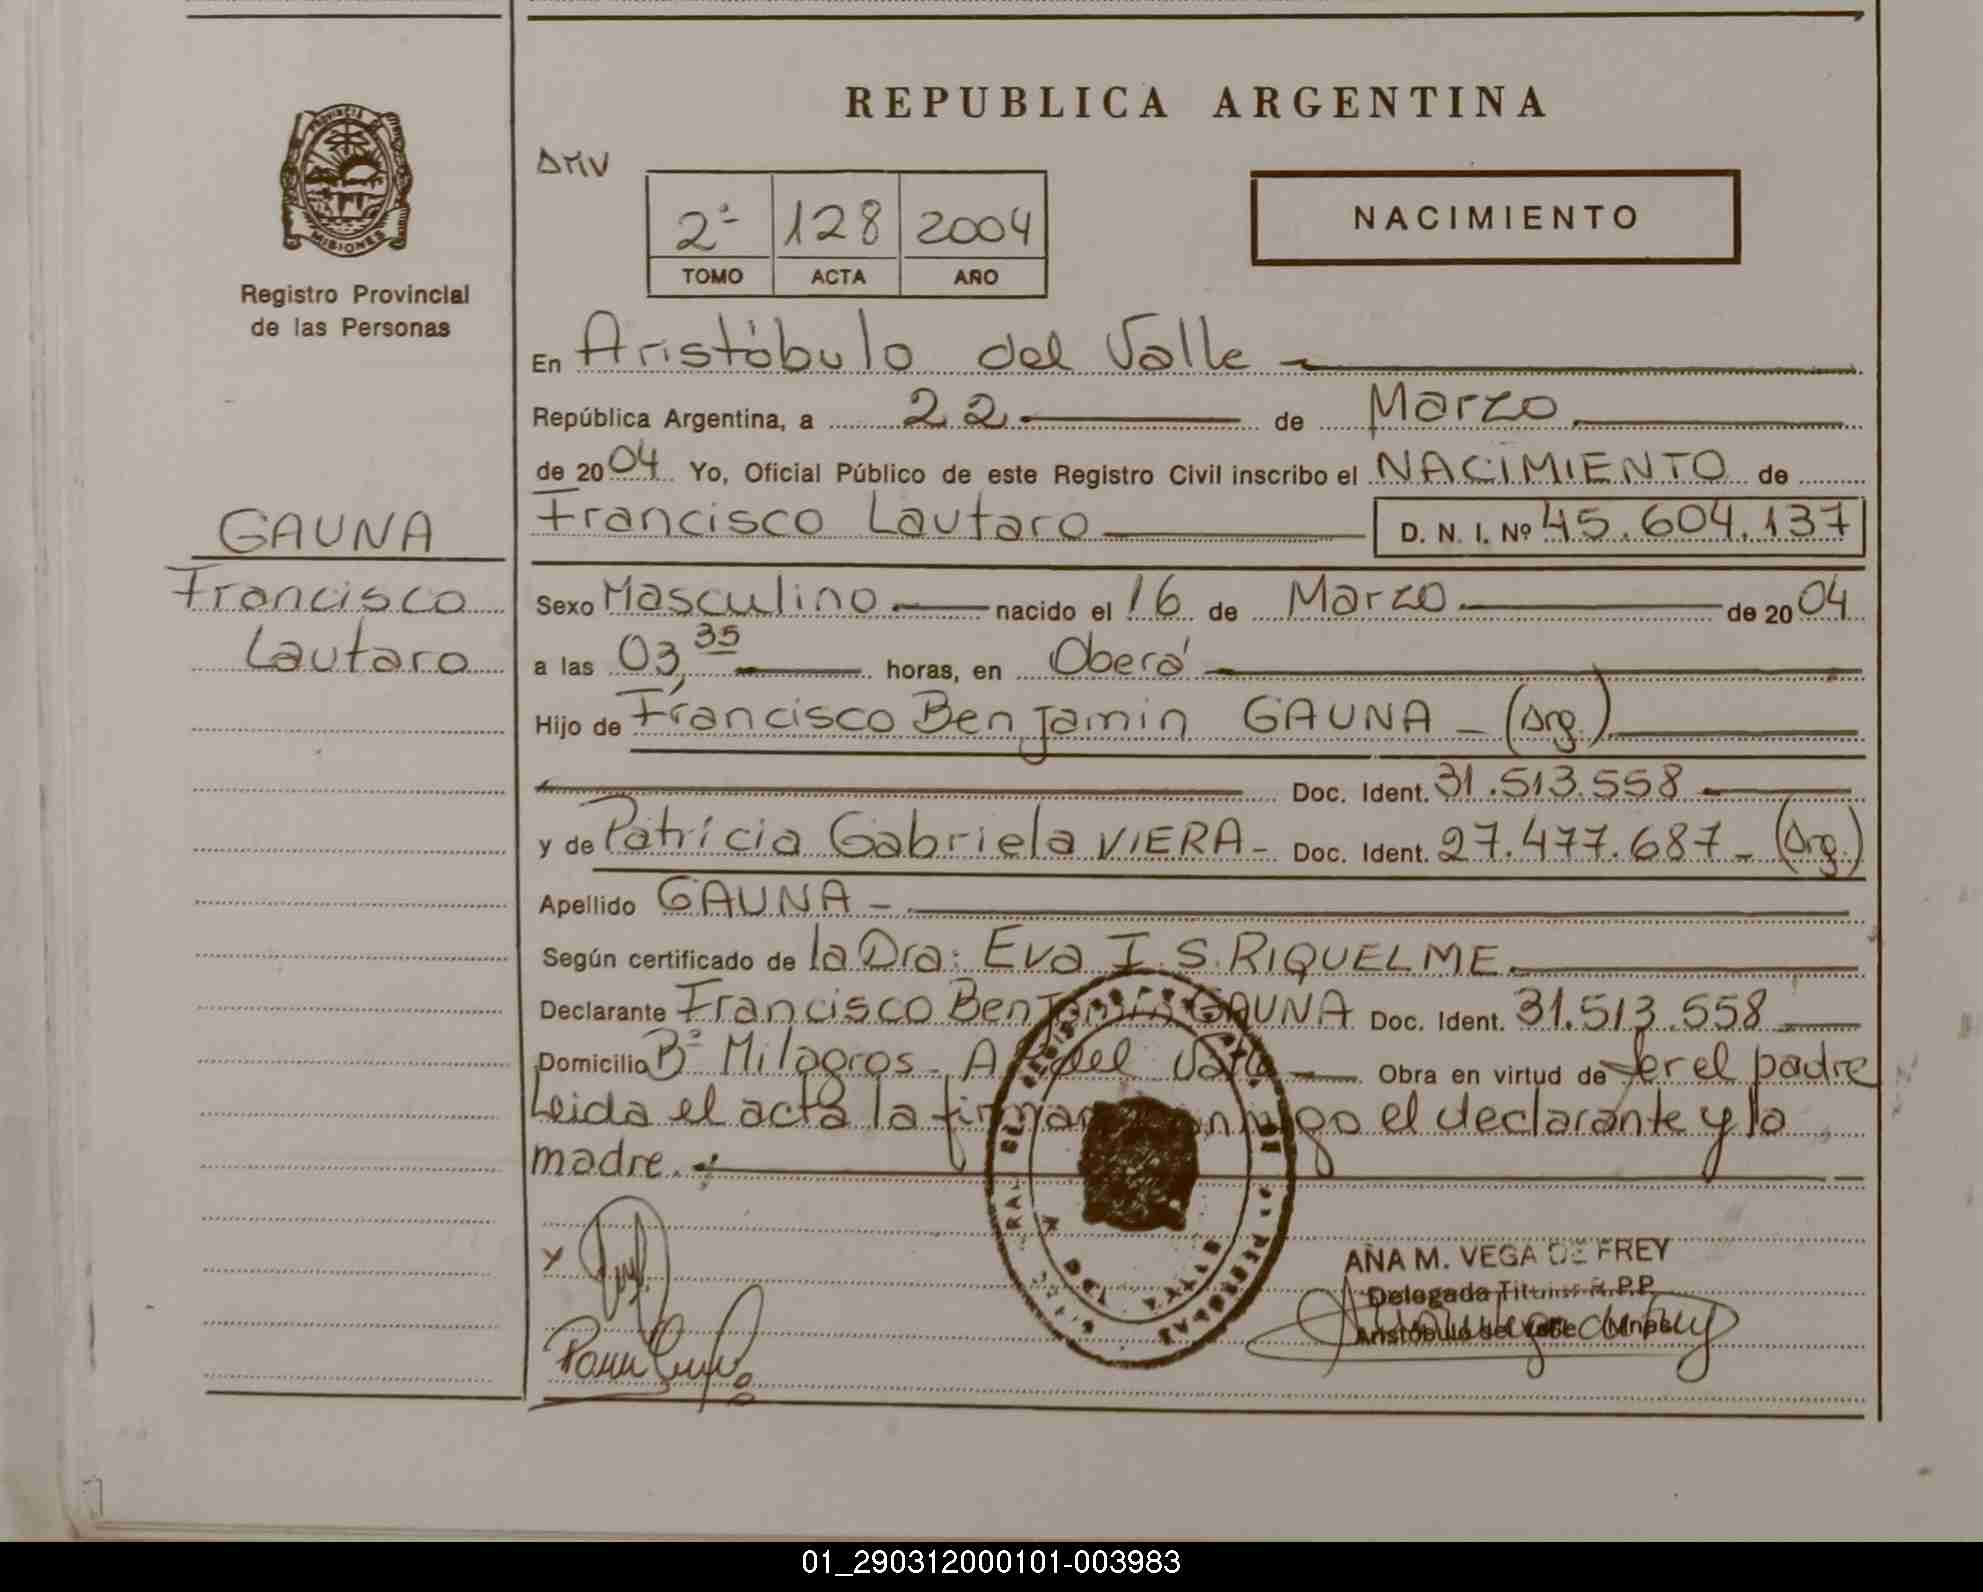 REPUBLICA ARGENTINA
PROVINCIA DE
MISIONES
Registro Provincial
de las Personas
GAUNA
Francisco
Lautaro
AMV
2º 128 2004
TOMO ACTA AÑO
NACIMIENTO
En Aristóbulo del Valle
República Argentina, a 22 de Marzo
de 2004 Yo, Oficial Público de este Registro Civil inscribo el NACIMIENTO de
Francisco Lautaro D. N. I. Nº 45.604.137
Sexo Masculino nacido el 16 de Marzo de 2004
a las 03,35 horas, en Oberá
Hijo de Francisco Benjamin GAUNA - (Arg.)
Doc. Ident. 31.513.558
y de Patricia Gabriela VIERA - Doc. Ident. 27.477.687 - (Arg.)
Apellido GAUNA -
Según certificado de la Dra: Eva I. S. RIQUELME
Declarante Francisco Benjamin GAUNA Doc. Ident. 31.513.558
Domicilio Bº Milagros - A. del Valle Obra en virtud de ser el padre
Leida el acta la firman conmigo el declarante y la
madre.
ANA M. VEGA DE FREY
Delegada Titular R.P.P.
Aristóbulo del Valle Mnes
01_290312000101-003983